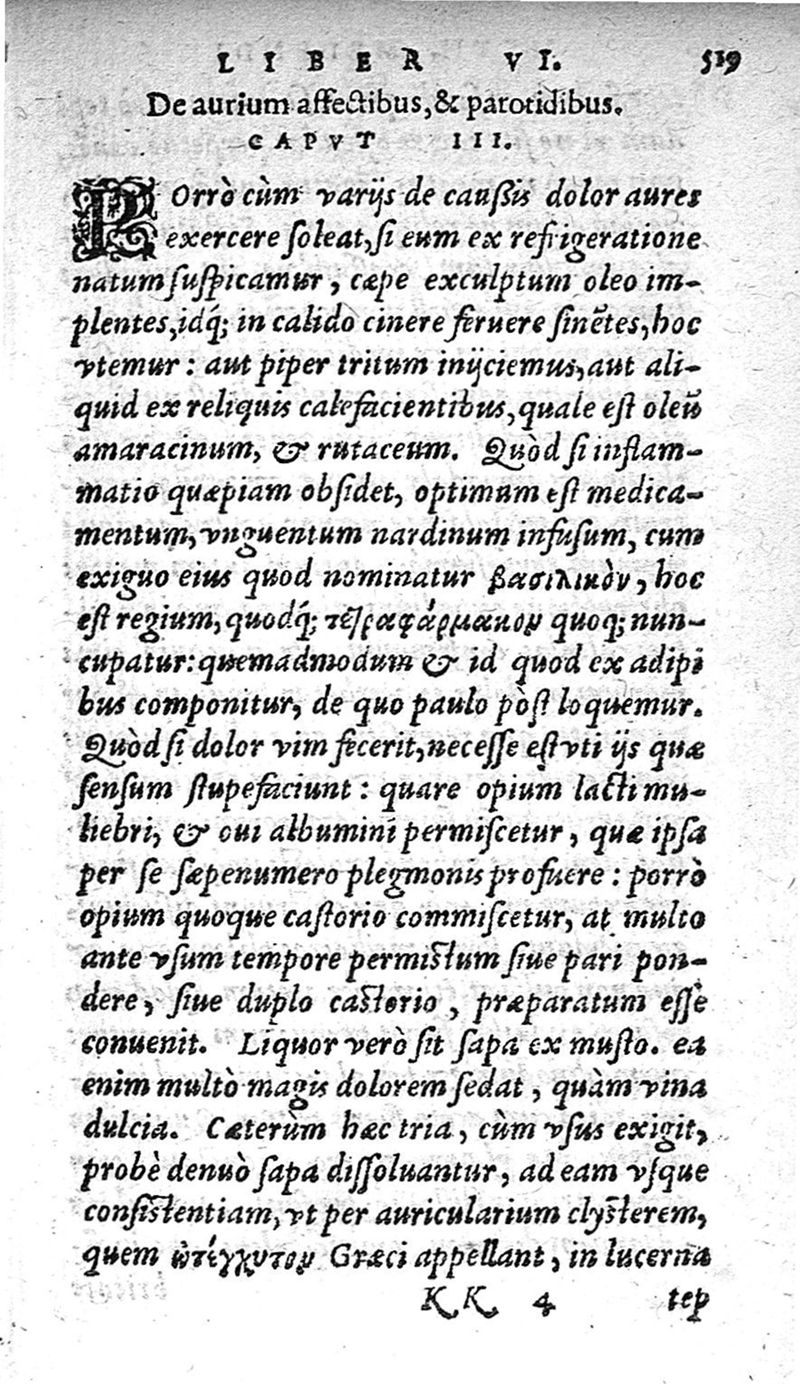 LIBER VI. 519
De aurium affectibus, & parotidibus.
CAPVT III.
POrrò cùm varijs de caußis dolor aures
exercere soleat, si eum ex refrigeratione
natum suspicamur, cæpe exculptum oleo im-
plentes, idq́; in calido cinere feruere sinẽtes, hoc
vtemur: aut piper tritum inijciemus, aut ali-
quid ex reliquis calefacientibus, quale est oleũ
amaracinum, & rutaceum. Quòd si inflam-
matio quæpiam obsidet, optimum est medica-
mentum, vnguentum nardinum infusum, cum
exiguo eius quod nominatur βασιλικὸν, hoc
est regium, quodq́; τετραφάρμακον quoq; nun-
cupatur: quemadmodum & id quod ex adipi
bus componitur, de quo paulo pòst loquemur.
Quòd si dolor vim fecerit, necesse est vti ijs quæ
sensum stupefaciunt: quare opium lacti mu-
liebri, & oui albumini permiscetur, quæ ipsa
per se sæpenumero plegmonis profuere: porrò
opium quoque castorio commiscetur, at multo
ante vsum tempore permistum siue pari pon-
dere, siue duplo castorio, præparatum esse
conuenit. Liquor verò sit sapa ex musto. ea
enim multò magis dolorem sedat, quàm vina
dulcia. Cæterùm hæc tria, cùm vsus exigit,
probè denuò sapa dissoluantur, ad eam vsque
consistentiam, vt per auricularium clysterem,
quem ὠτέγχυτον Græci appellant, in lucerna
KK 4 tep